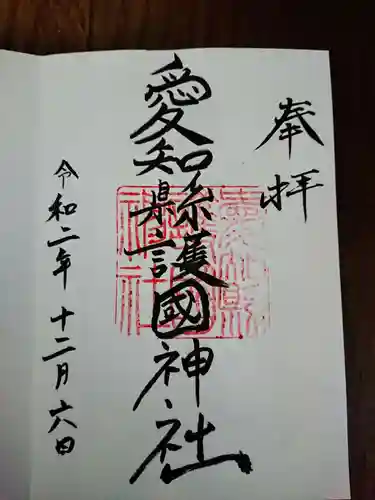 奉拝
愛知縣護國神社
令和二年 十二月 六日